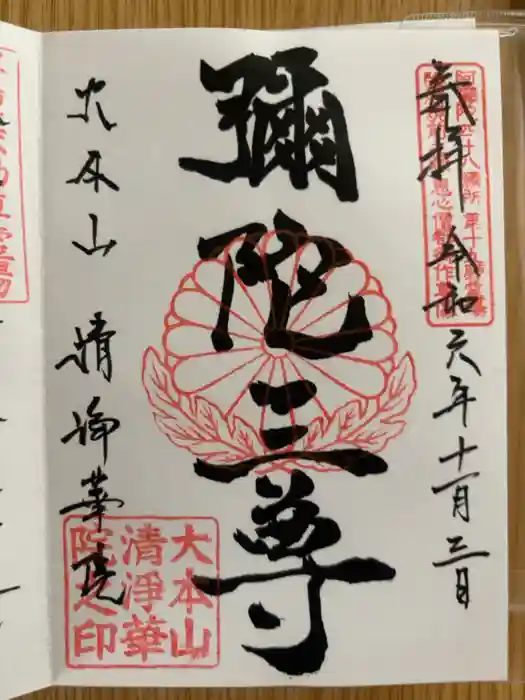 奉拝 令和六年十一月三日
彌陀三尊
大本山 清浄華院
大本山
清淨華
院之印